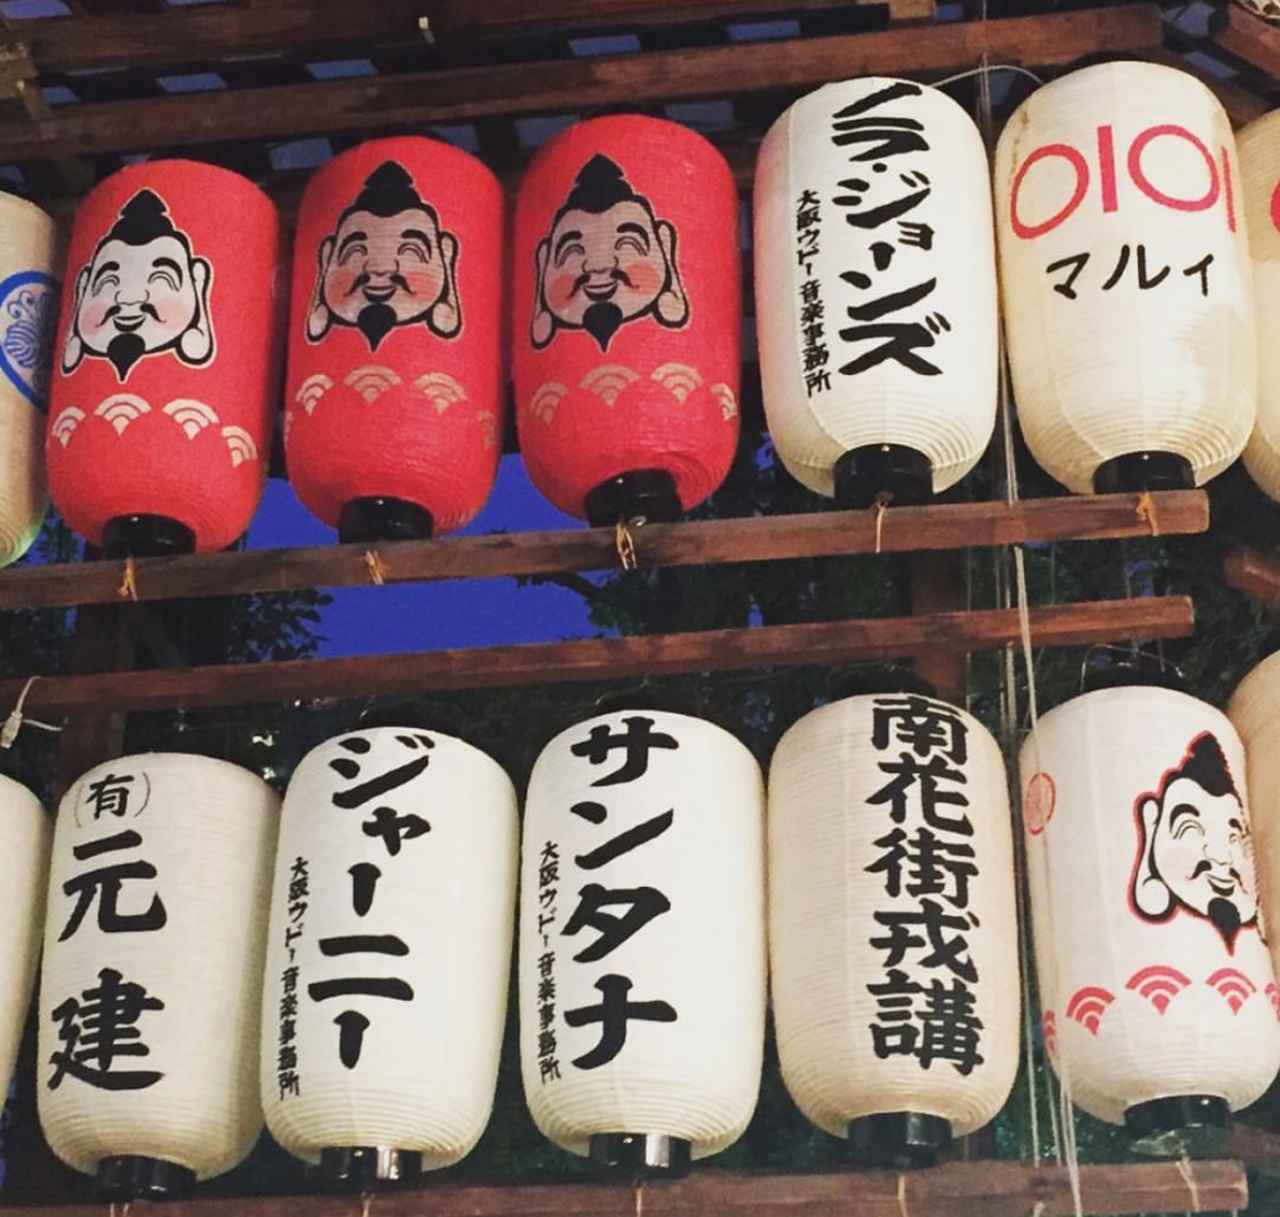 ノラ・ジョーンズ
大阪ウドー音楽事務所
OIOI
マルイ
(有)元建
ジャーニー
大阪ウドー音楽事務所
サンタナ
大阪ウドー音楽事務所
南花街戎講